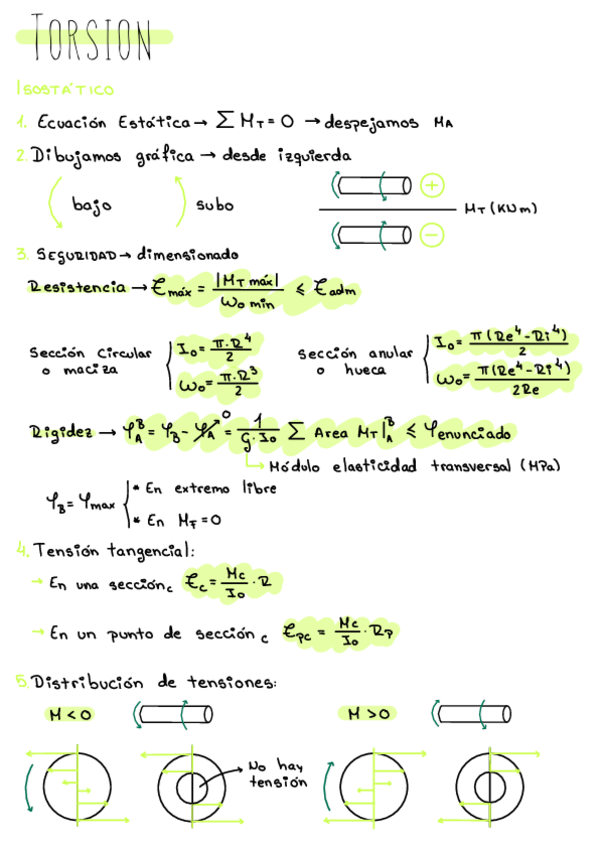 TORSION
ISOSTÁTICO
1. Ecuación Estática → ∑ M_T = 0 → despejamos M_A
2. Dibujamos gráfica → desde izquierda
bajo subo
+
M_T (KNm)
−
3. SEGURIDAD → dimensionado
Resistencia → τ_máx = |M_T máx| / W_0 min ≤ τ_adm
Sección Circular o maciza
I_0 = π·R^4 / 2
W_0 = π·R^3 / 2
Sección anular o hueca
I_0 = π(Re^4 - Ri^4) / 2
W_0 = π(Re^4 - Ri^4) / 2Re
Rigidez → φ_A^B = φ_B - φ_A^0 = 1 / G·I_0 ∑ Area M_T|_A^B ≤ φ_enunciado
Módulo elasticidad transversal (MPa)
φ_B = φ_max
* En extremo libre
* En M_T = 0
4. Tensión tangencial:
→ En una sección_c τ_c = Mc / I_0 · R
→ En un punto de sección_c τ_pc = Mc / I_0 · R_P
5. Distribución de tensiones:
M < 0 M > 0
No hay
tensión